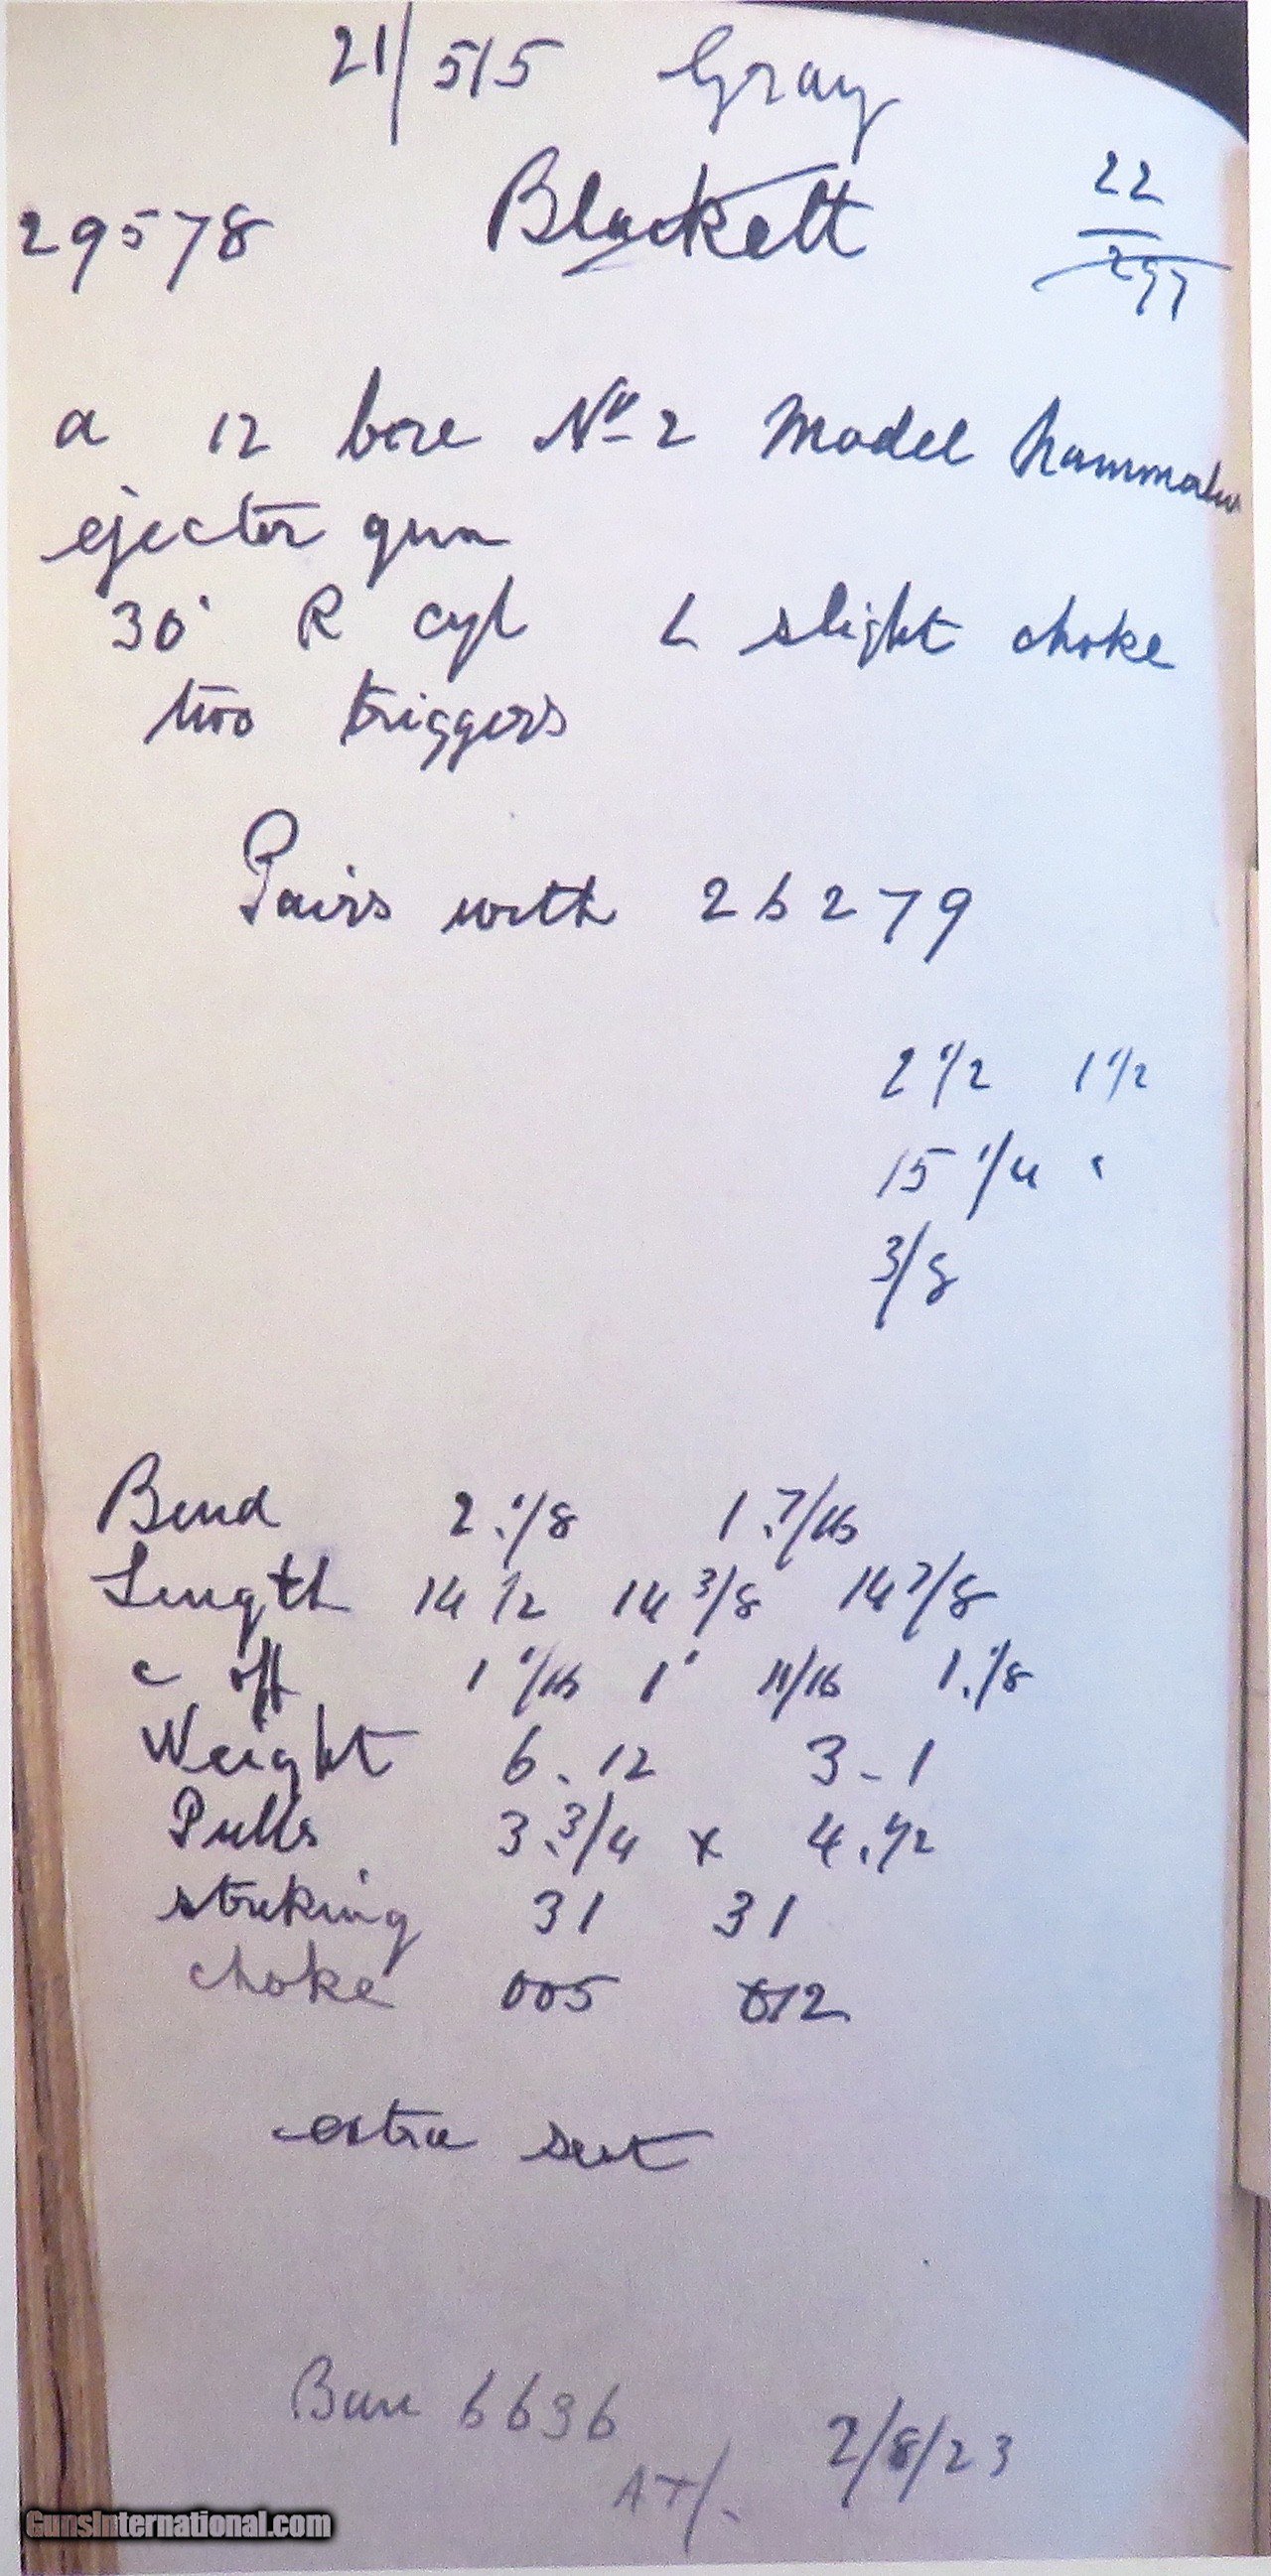 21/515 Gray
29578 Blackett 22
297
a 12 bore No 2 Model hammerless
ejector gun
30" R cyl L slight choke
two triggers
Pairs with 26279
2 1/2 1 1/2
15 1/4 "
3/8
Bend 2.1/8 1.7/16
Length 14 1/2 14 3/8 14 7/8
c off 1 1/16 1" 11/16 1.1/8
Weight 6.12 3-1
Pulls 3.3/4 x 4.1/2
striking 31 31
choke 005 012
extra
6636
2/8/23
GunsInternational.com